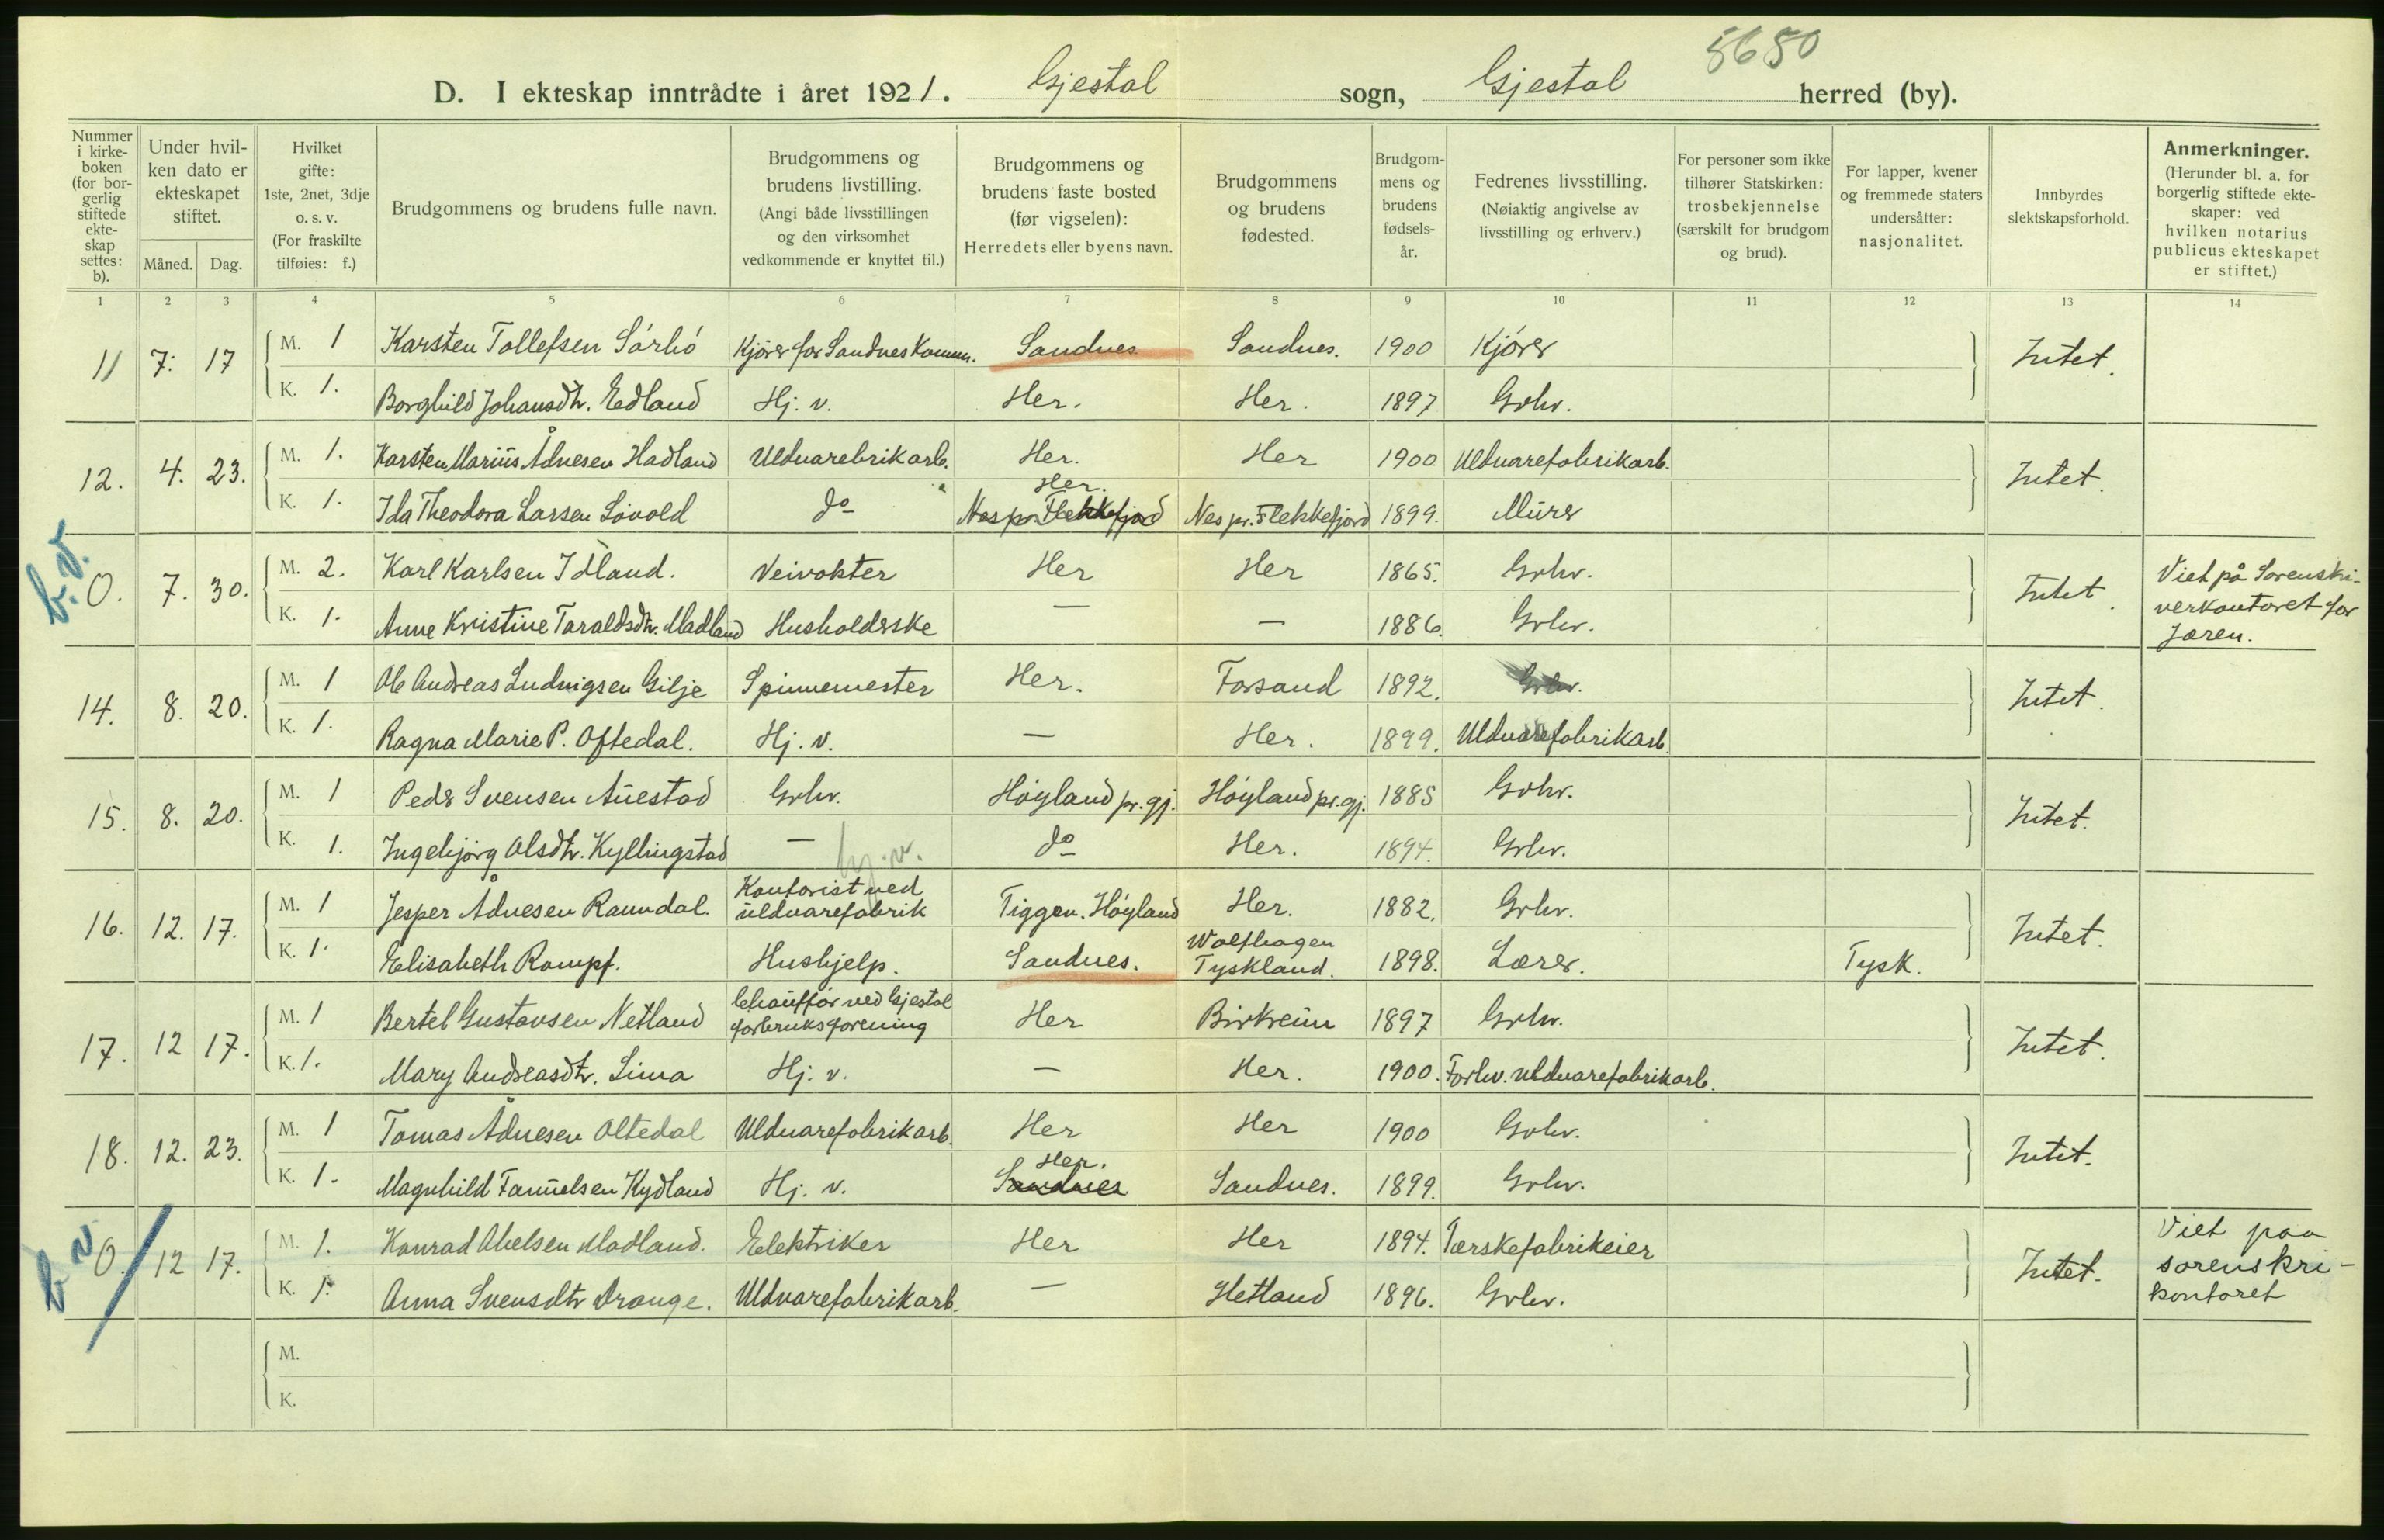 5650
D. I ekteskap inntrådte i året 1921. Gjestal sogn, Gjestal herred (by).
Nummer i kirkeboken (for borgerlig stiftede ekteskap settes: b).
Under hvilken dato er ekteskapet stiftet.
Måned. Dag.
Hvilket gifte: 1ste, 2net, 3dje o. s. v. (For fraskilte tilføies: f.)
Brudgommens og brudens fulle navn.
Brudgommens og brudens livstilling. (Angi både livsstillingen og den virksomhet vedkommende er knyttet til.)
Brudgommens og brudens faste bosted (før vigselen): Herredets eller byens navn.
Brudgommens og brudens fødested.
Brudgommens og brudens fødselsår.
Fedrenes livsstilling. (Nøiaktig angivelse av livsstilling og erhverv.)
For personer som ikke tilhører Statskirken: trosbekjennelse (særskilt for brudgom og brud).
For lapper, kvener og fremmede staters undersåtter: nasjonalitet.
Innbyrdes slektskapsforhold.
Anmerkninger. (Herunder bl. a. for borgerlig stiftede ekteskaper: ved hvilken notarius publicus ekteskapet er stiftet.)
1 2 3 4 5 6 7 8 9 10 11 12 13 14
11 7: 17 M. 1 Karsten Tollefsen Sørbø Kjører for Sandnes Komm. Sandnes Sandnes. 1900 Kjører Intet.
K. 1. Borghild Johansdtr. Edland Hj. v. Her. Her. 1897 Grbr.
12. 4. 23. M. 1. Karsten Marius Ådnesen Hadland Uldvarebrikarb. Her. Her 1900 Uldvarefabrikarb. Intet.
Her.
K. 1. Ida Theodora Larsen Løvold do Nes pr. Flekkefjord Nes pr. Flekkefjord 1899. Murer
b.v. 0. 7. 30. M. 2. Karl Karlsen Idland. Veivokter Her Her 1865. Grbr. Intet. Viet på Sorenskriverkontoret for Jæren.
K. 1. Anne Kristine Taraldsdtr. Madland Husholderske — — 1886. Grbr.
14. 8. 20. M. 1 Ole Andreas Ludvigsen Gilje Spinnemester Her. Forsand 1892. Grbr. Intet.
K. 1. Ragna Marie P. Oftedal. Hj. v. — Her. 1899. Uldvarefabrikarb.
15. 8. 20. M. 1 Peder Svensen Auestad Grbr. Høyland pr. gj. Høyland pr. gj. 1885 Grbr. Intet.
K. 1. Ingebjørg Olsdtr. Kyllingstad — hj.v. do Her. 1894. Grbr.
16. 12. 17. M. 1 Jesper Ådnesen Ravndal. Kontorist ved uldvarefabrik Figgen. Høyland Her. 1882. Grbr. Intet.
K. 1. Elisabeth Rompf. Hushjelp. Sandnes. Wolfhagen Tyskland. 1898. Lærer. Tysk.
17. 12 17. M. 1 Bertel Gustavsen Netland Chauffør ved Gjestal forbruksforening Her Birkreim 1897 Grbr. Intet.
K. 1. Mary Andreasdtr. Lima Hj. v. — Her. 1900. Forhv. uldvarefabrikarb.
18. 12. 23. M. 1 Tomas Ådnesen Oltedal Uldvarefabrikarb. Her Her 1900 Grbr. Intet.
Her.
K. 1. Magnhild Samuelsen Kydland Hj. v. Sandnes Sandnes. 1899. Grbr.
b v 0. 12 17. M. 1. Konrad Abelsen Madland. Elektriker Her Her 1894. Værskefabrikeier Intet. Viet paa sorenskri-kontoret
K. 1. Anna Svensdtr Orange. Uldvarefabrikarb. — Hetland 1896. Grbr.
M.
K.